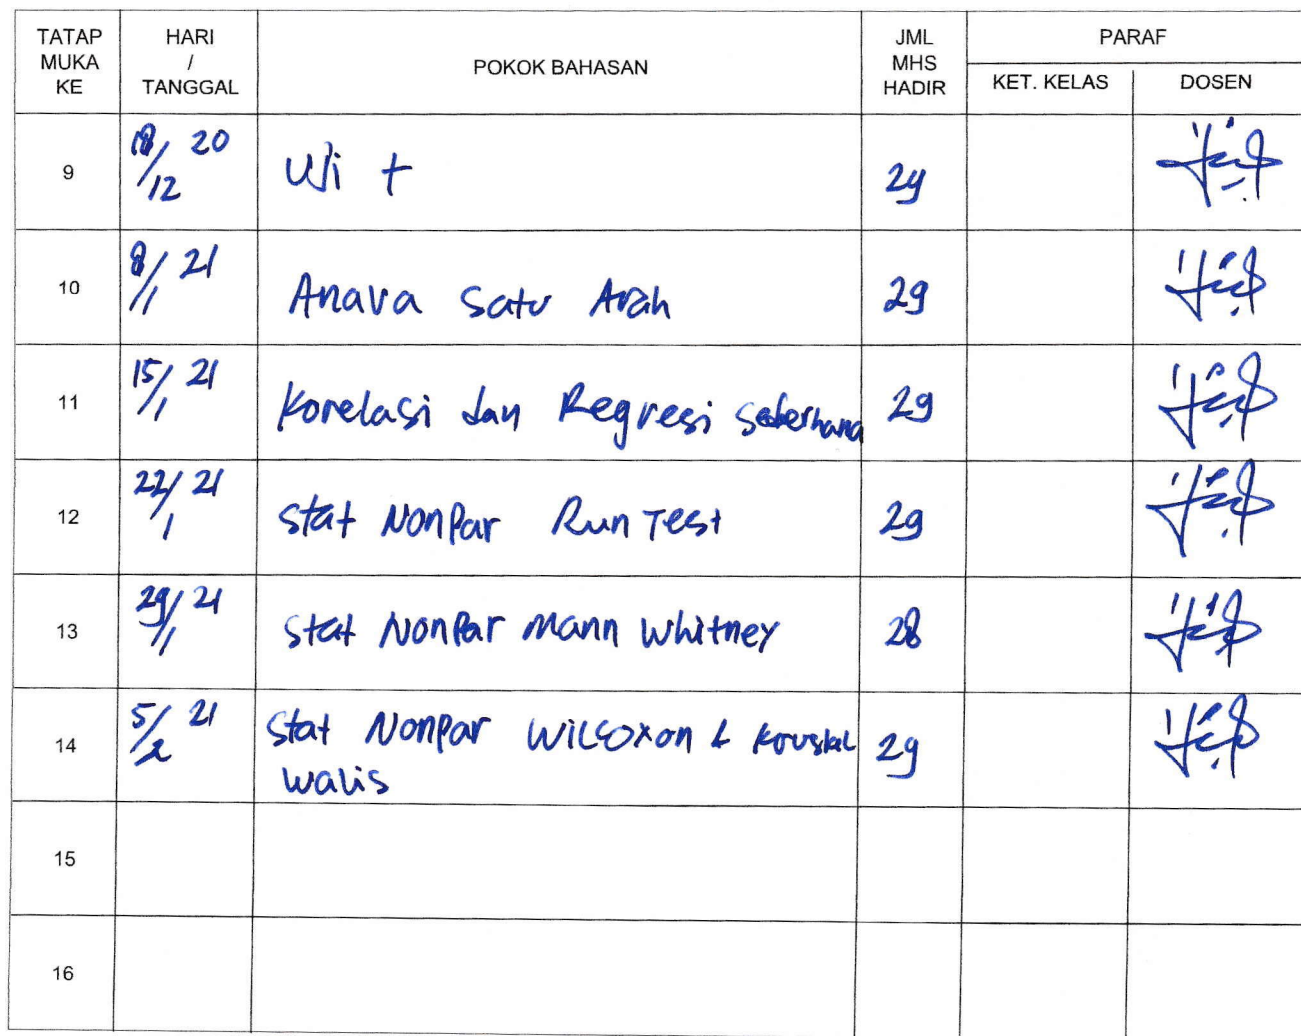 TATAP MUKA KE HARI / TANGGAL POKOK BAHASAN JML MHS HADIR PARAF
KET. KELAS DOSEN
9 18/12 20 Uji t 29
10 8/1 21 Anava Satu Arah 29
11 15/1 21 Korelasi dan Regresi sederhana 29
12 22/1 21 Stat NonPar Run Test 29
13 29/1 21 Stat NonPar Mann Whitney 28
14 5/2 21 Stat NonPar Wilcoxon & 29
Walis
15
16